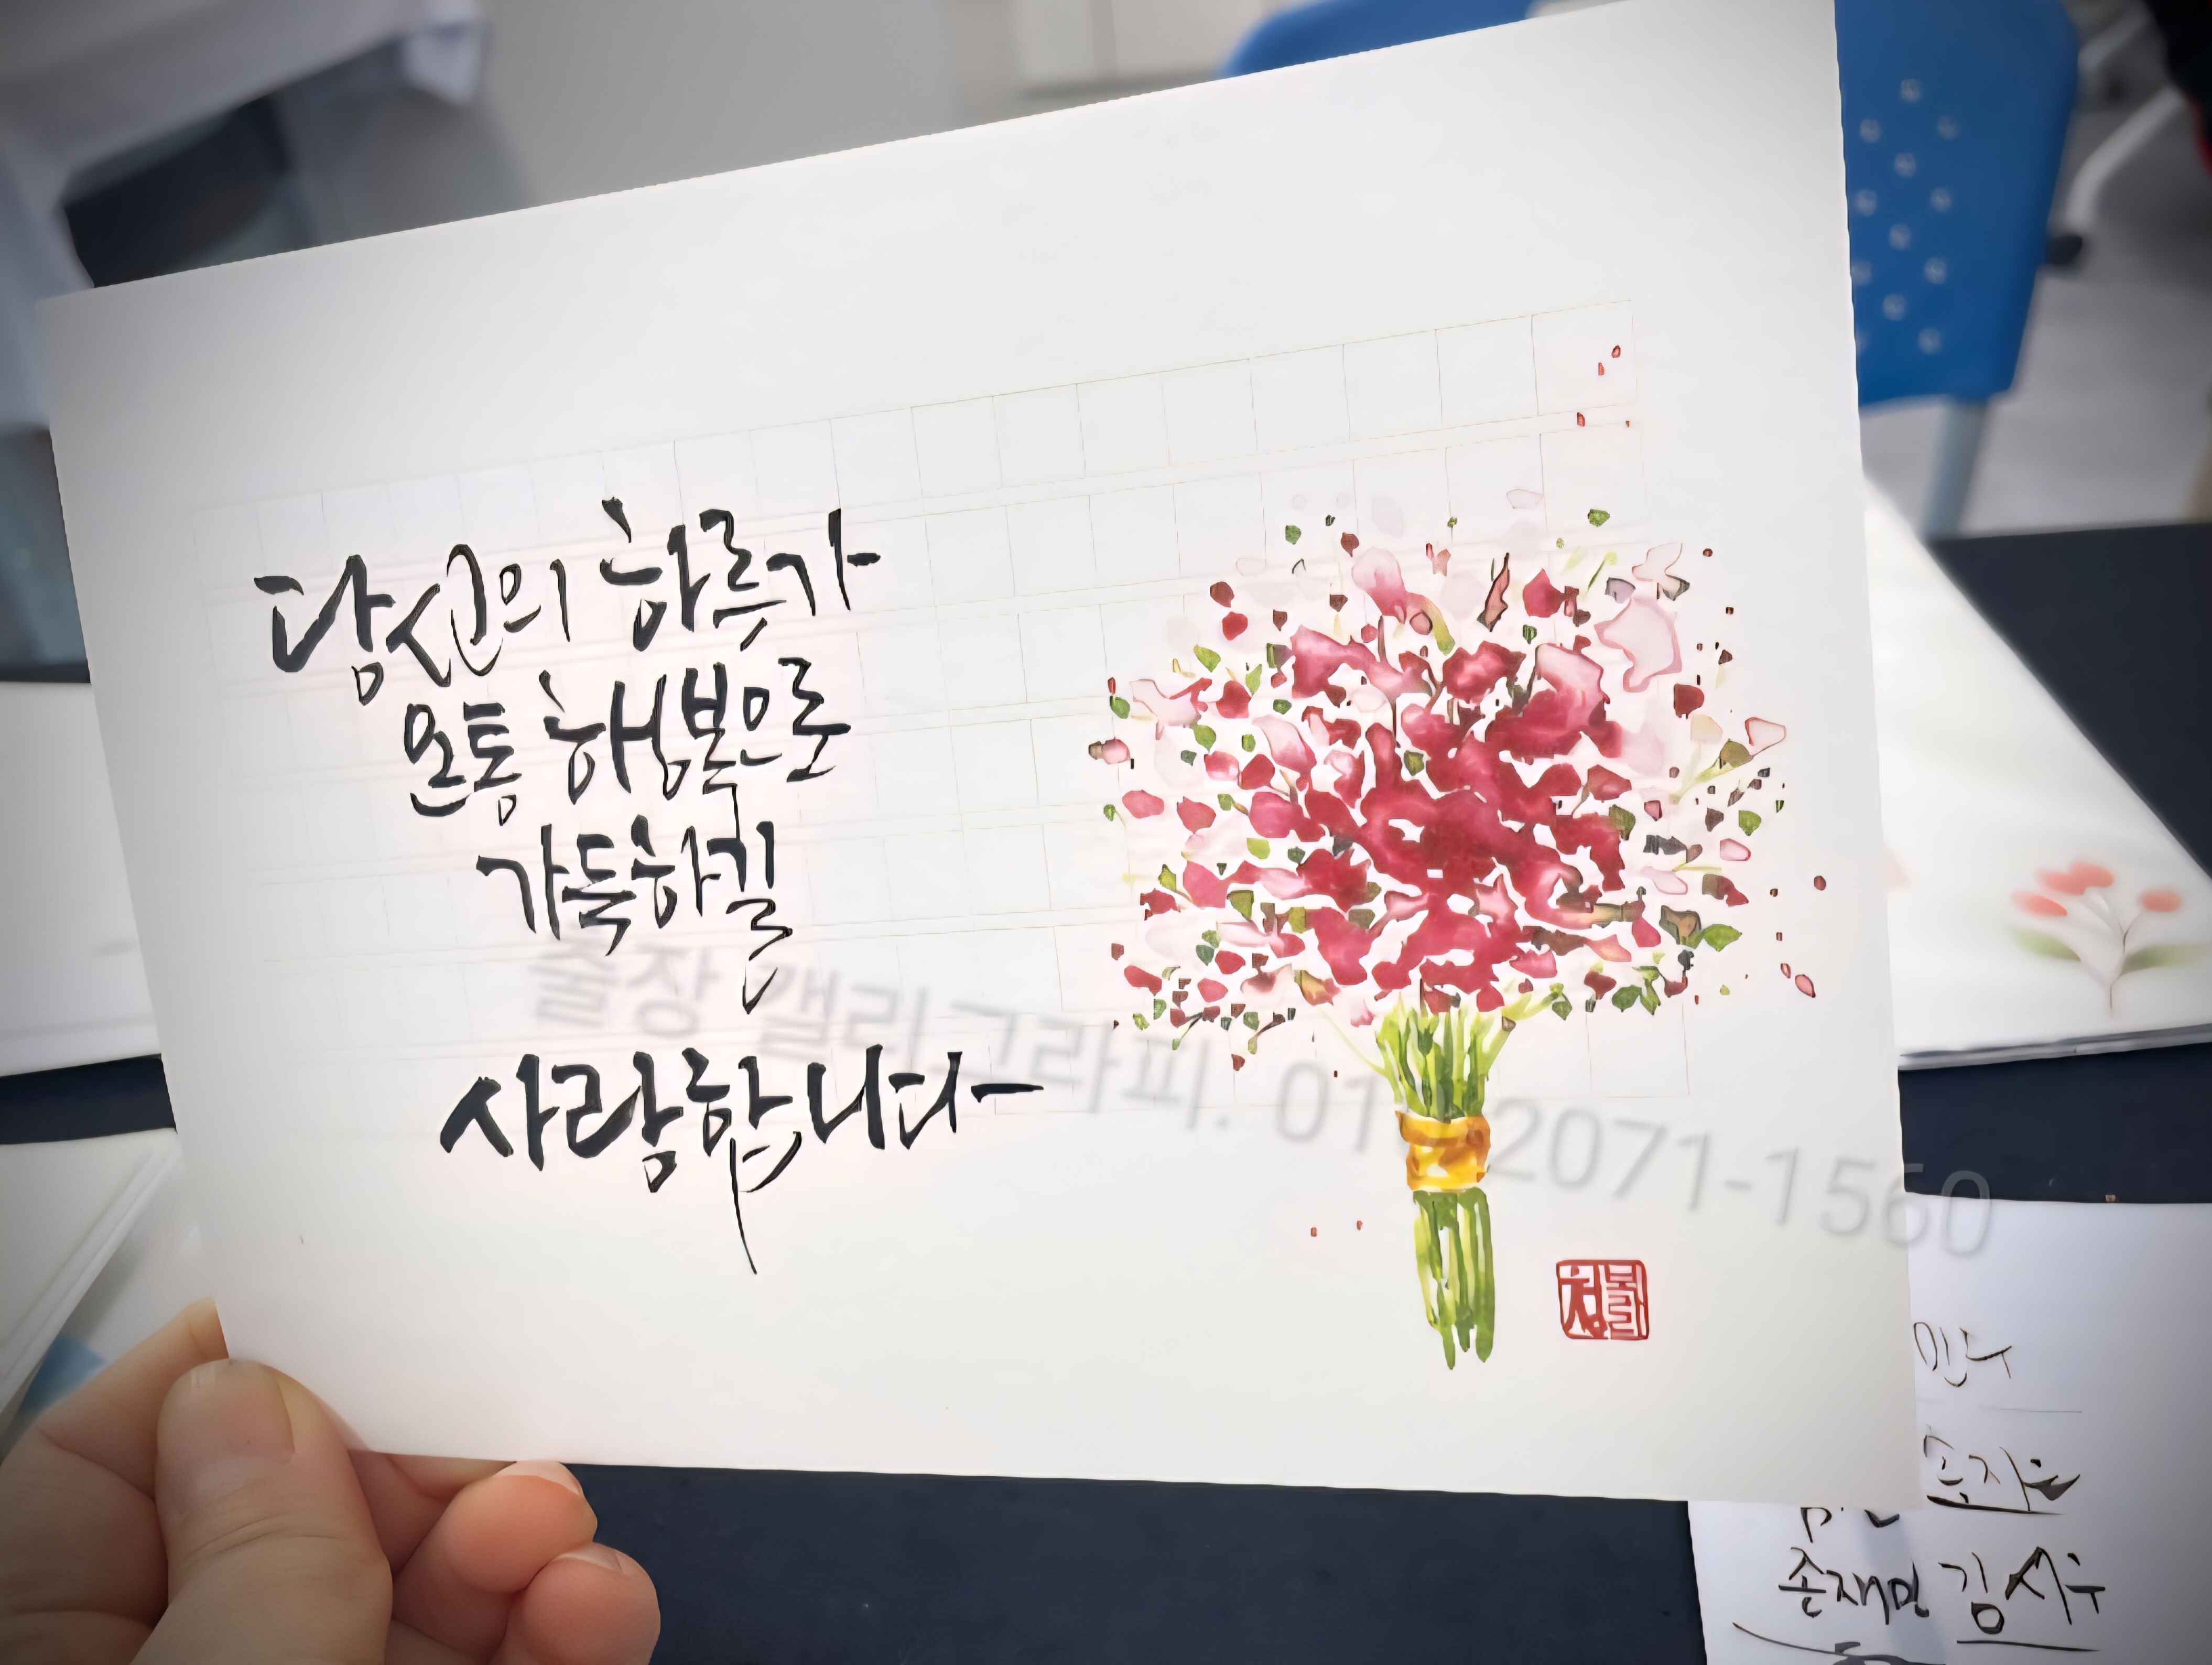 당신의 하루가
온통 행복으로
가득하길
사랑합니다
출장 캘리그라피. 01 2071-1560
민수
손재민 김서우